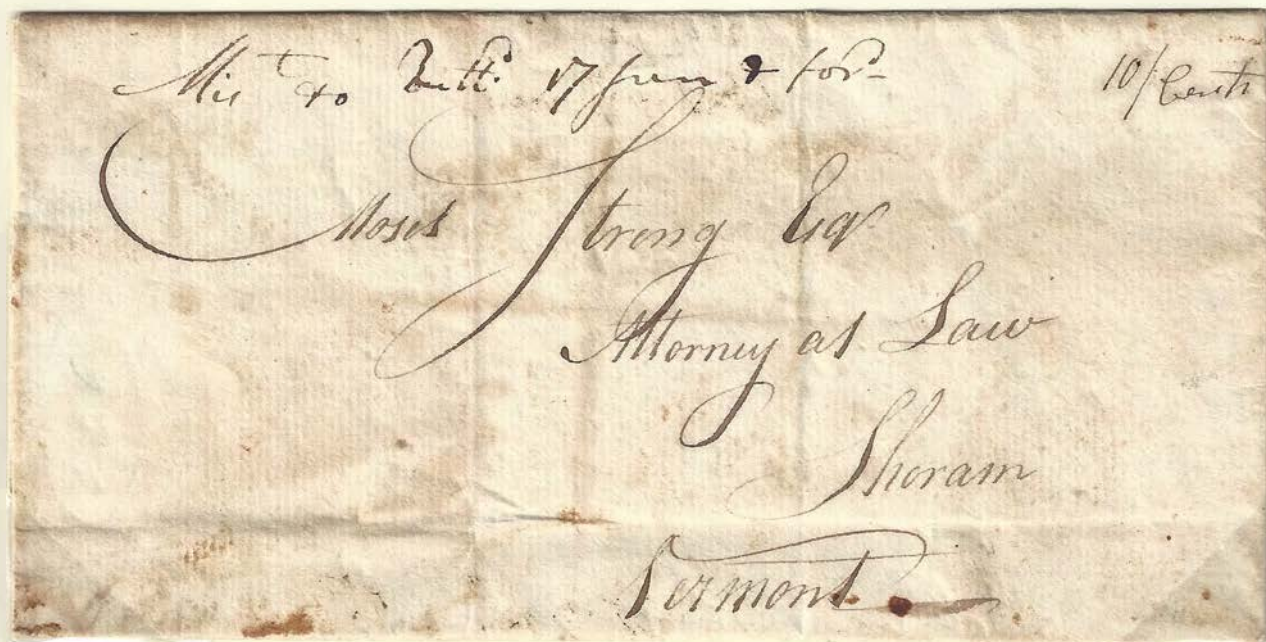 Misᵗ to Rutlᵈ 17 June & forᵈ 10/ Cents
Moses Strong Esqʳ
Attorney at Law
Shoram
Vermont